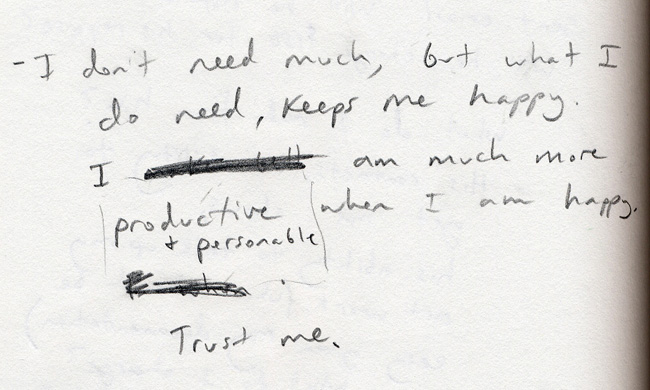 - I don't need much, but what I
do need, keeps me happy.
I am much more
productive when I am happy.
+ personable
Trust me.